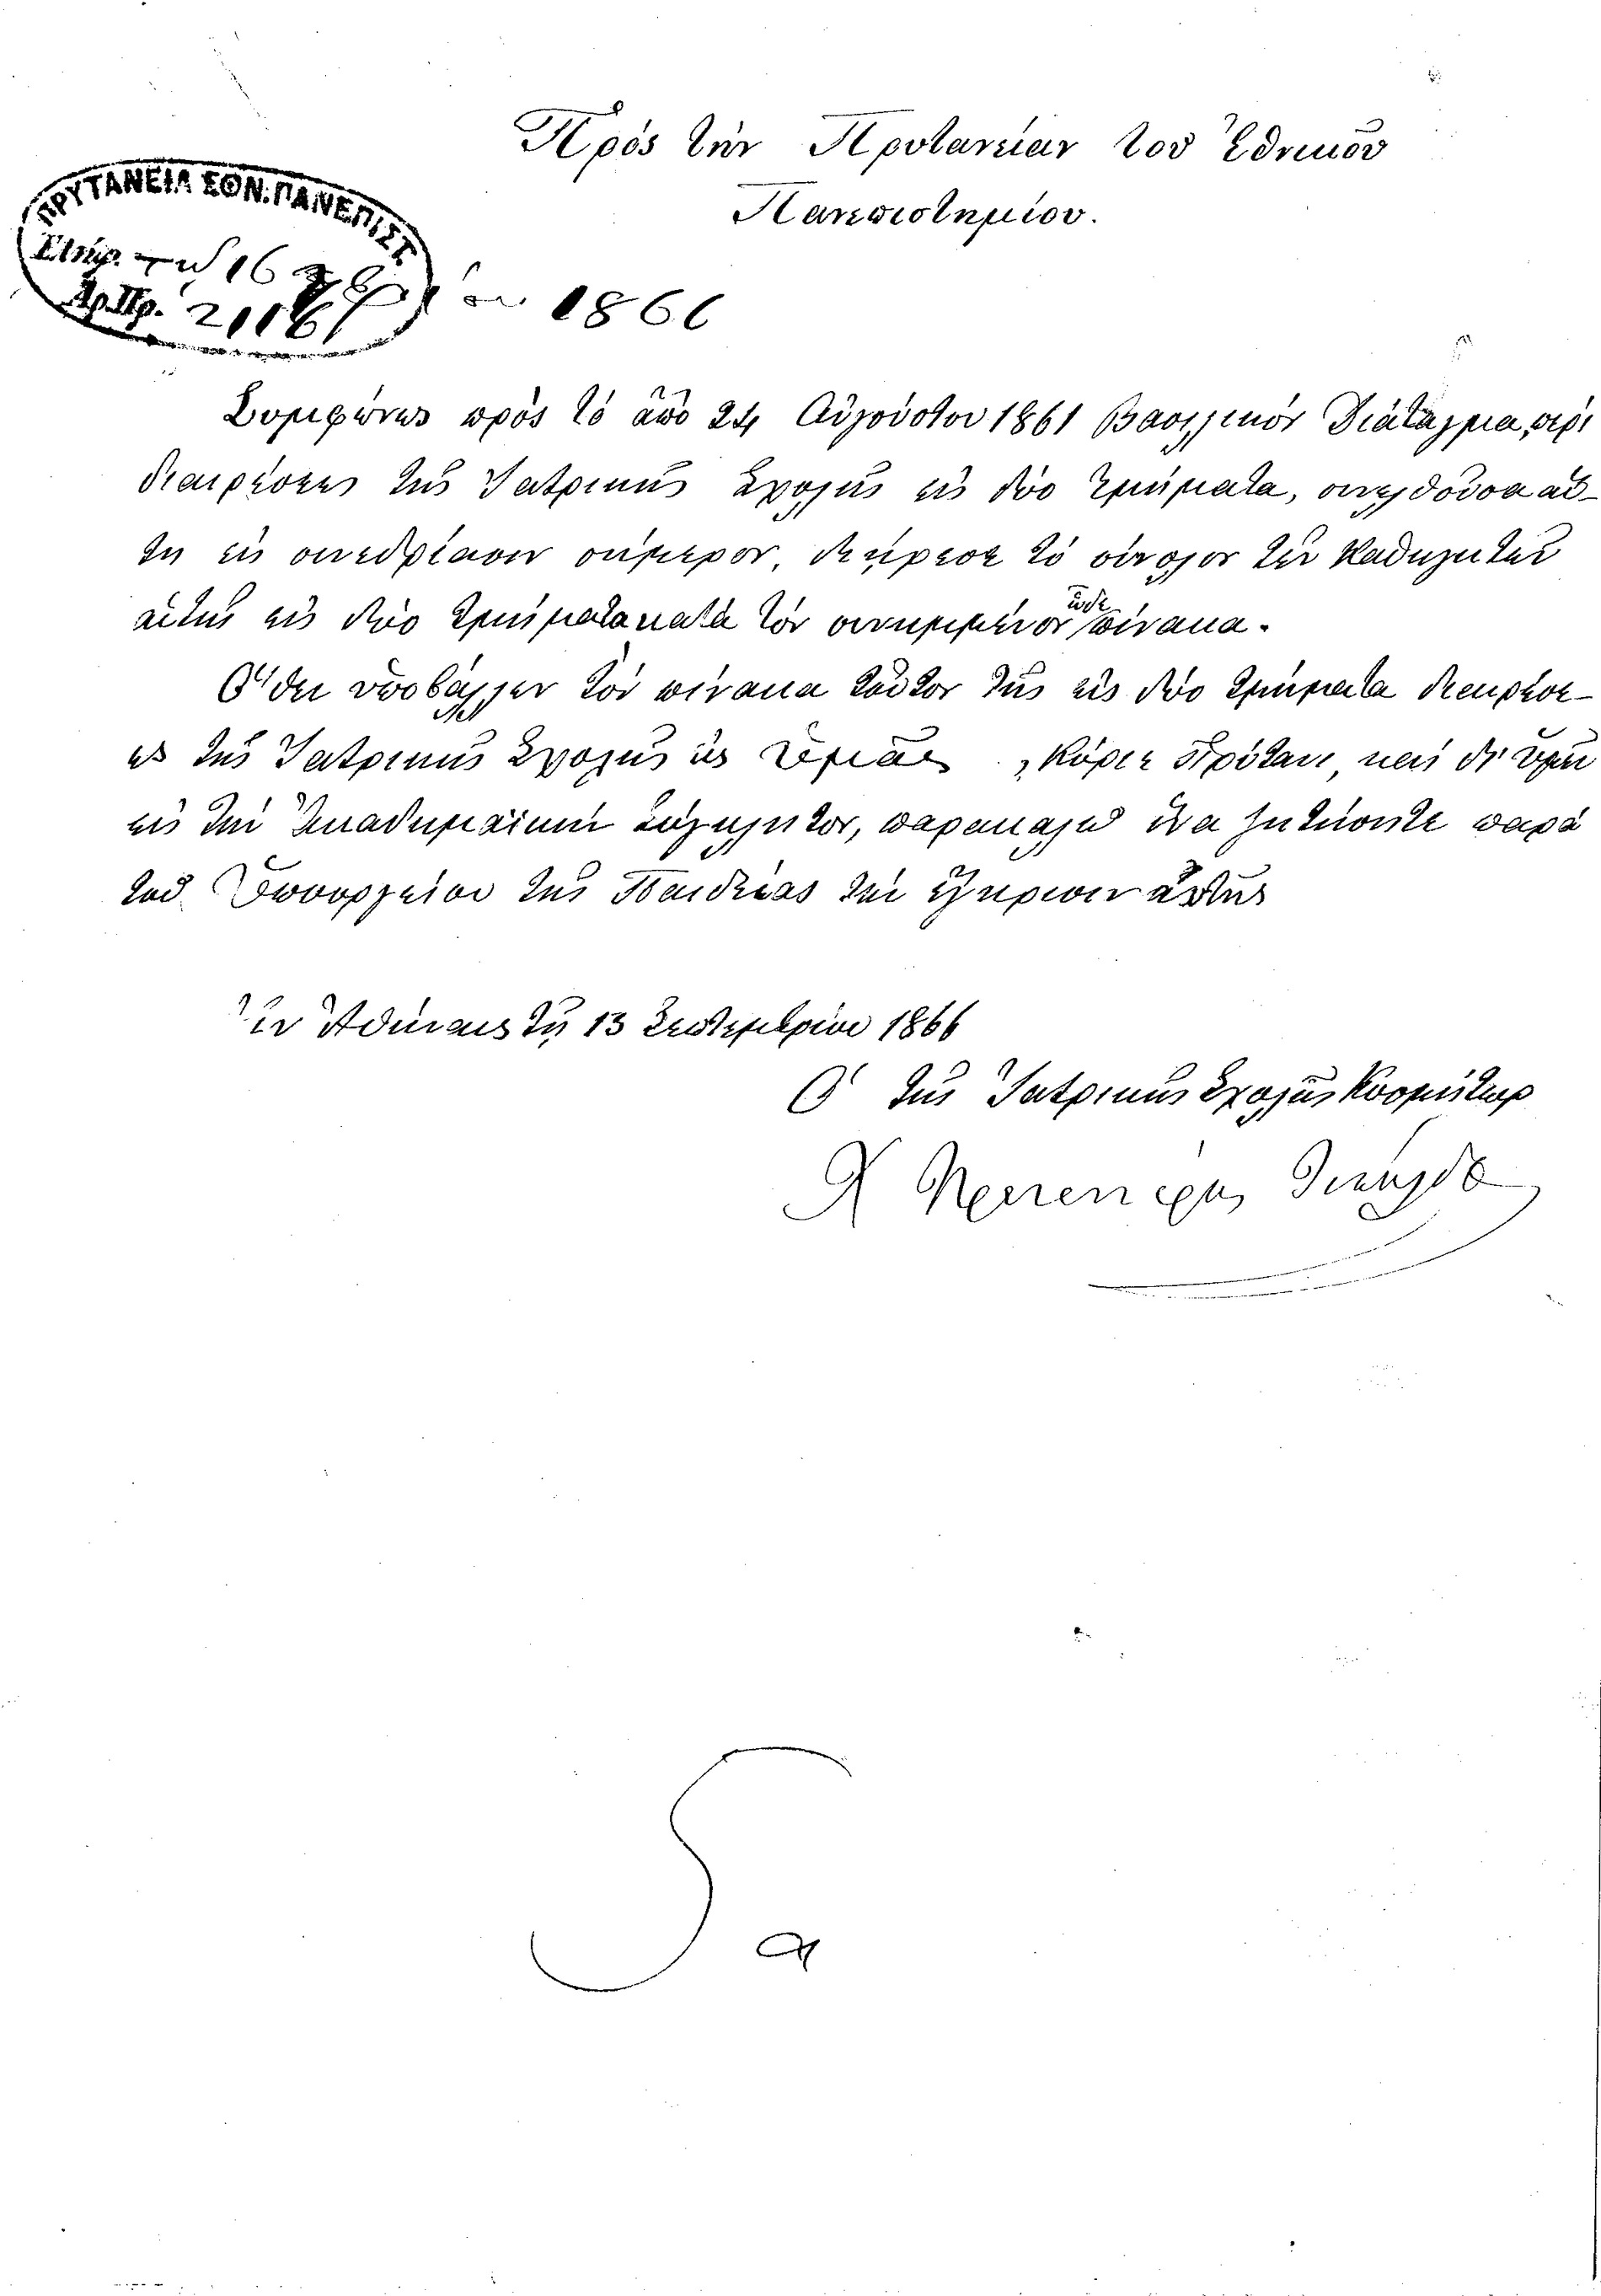 Πρὸς τὴν Πρυτανείαν τοῦ Ἐθνικοῦ
Πανεπιστημίου.
ΠΡΥΤΑΝΕΙΑ ΕΘΝ. ΠΑΝΕΠΙΣΤ.
16
Ἀρ. Πρ. 1866
Συμφώνως πρὸς τὸ ἀπὸ 24 Αὐγούστου 1861 Βασιλικὸν Διάταγμα, περὶ
διαιρέσεως τῆς Ἰατρικῆς Σχολῆς εἰς δύο τμήματα, συνελθοῦσα αὐ-
τη εἰς συνεδρίασιν σήμερον, διῄρεσε τὸ σύνολον τῶν Καθηγητῶν
αὐτῆς εἰς δύο τμήματα κατὰ τὸν συνημμένον ὧδε πίνακα.
Ὅθεν ὑποβάλλων τὸν πίνακα τοῦτον τῆς εἰς δύο τμήματα διαιρέσε-
ως τῆς Ἰατρικῆς Σχολῆς εἰς ὑμᾶς, Κύριε Πρύτανι, καὶ δι' ὑμῶν
εἰς τὴν Ἀκαδημαϊκὴν Σύγκλητον, παρακαλῶ ἵνα ζητήσητε παρὰ
τοῦ Ὑπουργείου τῆς Παιδείας τὴν ἔγκρισιν αὐτῆς
Ἐν Ἀθήναις τῇ 13 Σεπτεμβρίου 1866
Ὁ τῆς Ἰατρικῆς Σχολῆς Κοσμήτωρ